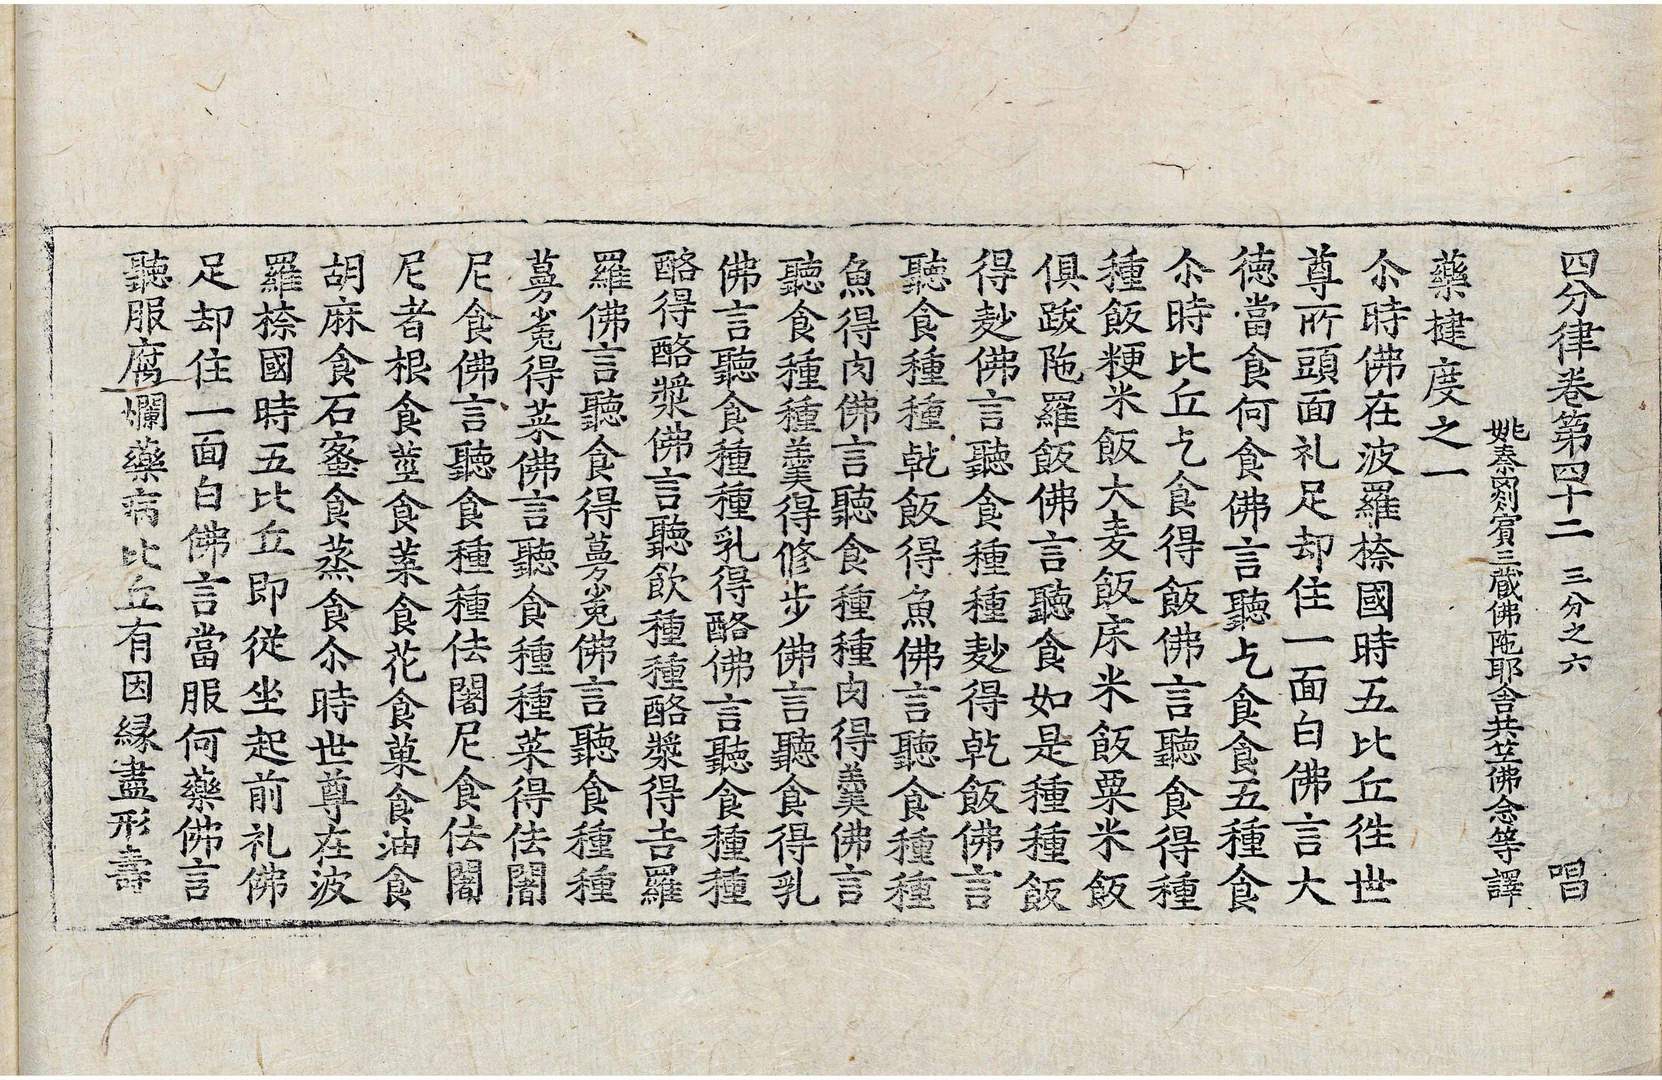 四分律卷第四十二 三分之六 唱
姚秦罽賓三藏佛陁耶舍共竺佛念等譯
藥揵度之一
尒時佛在波羅㮈國時五比丘徃世
尊所頭面礼足却住一面白佛言大
德當食何食佛言聽乞食食五種食
尒時比丘乞食得飯佛言聽食得種
種飯粳米飯大麦飯床米飯粟米飯
俱跋陁羅飯佛言聽食如是種種飯
得麨佛言聽食種種麨得乾飯佛言
聽食種種乾飯得魚佛言聽食種種
魚得肉佛言聽食種種肉得羹佛言
聽食種種羹得修步佛言聽食得乳
佛言聽食種種乳得酪佛言聽食種種
酪得酪漿佛言聽飲種種酪漿得吉羅
羅佛言聽食得蔓菟佛言聽食種種
蔓菟得菜佛言聽食種種菜得佉闍
尼食佛言聽食種種佉闍尼食佉闍
尼者根食莖食葉食花食菓食油食
胡麻食石蜜食蒸食尒時世尊在波
羅㮈國時五比丘即從坐起前礼佛
足却住一面白佛言當服何藥佛言
聽服腐爛藥病比丘有因緣盡形壽